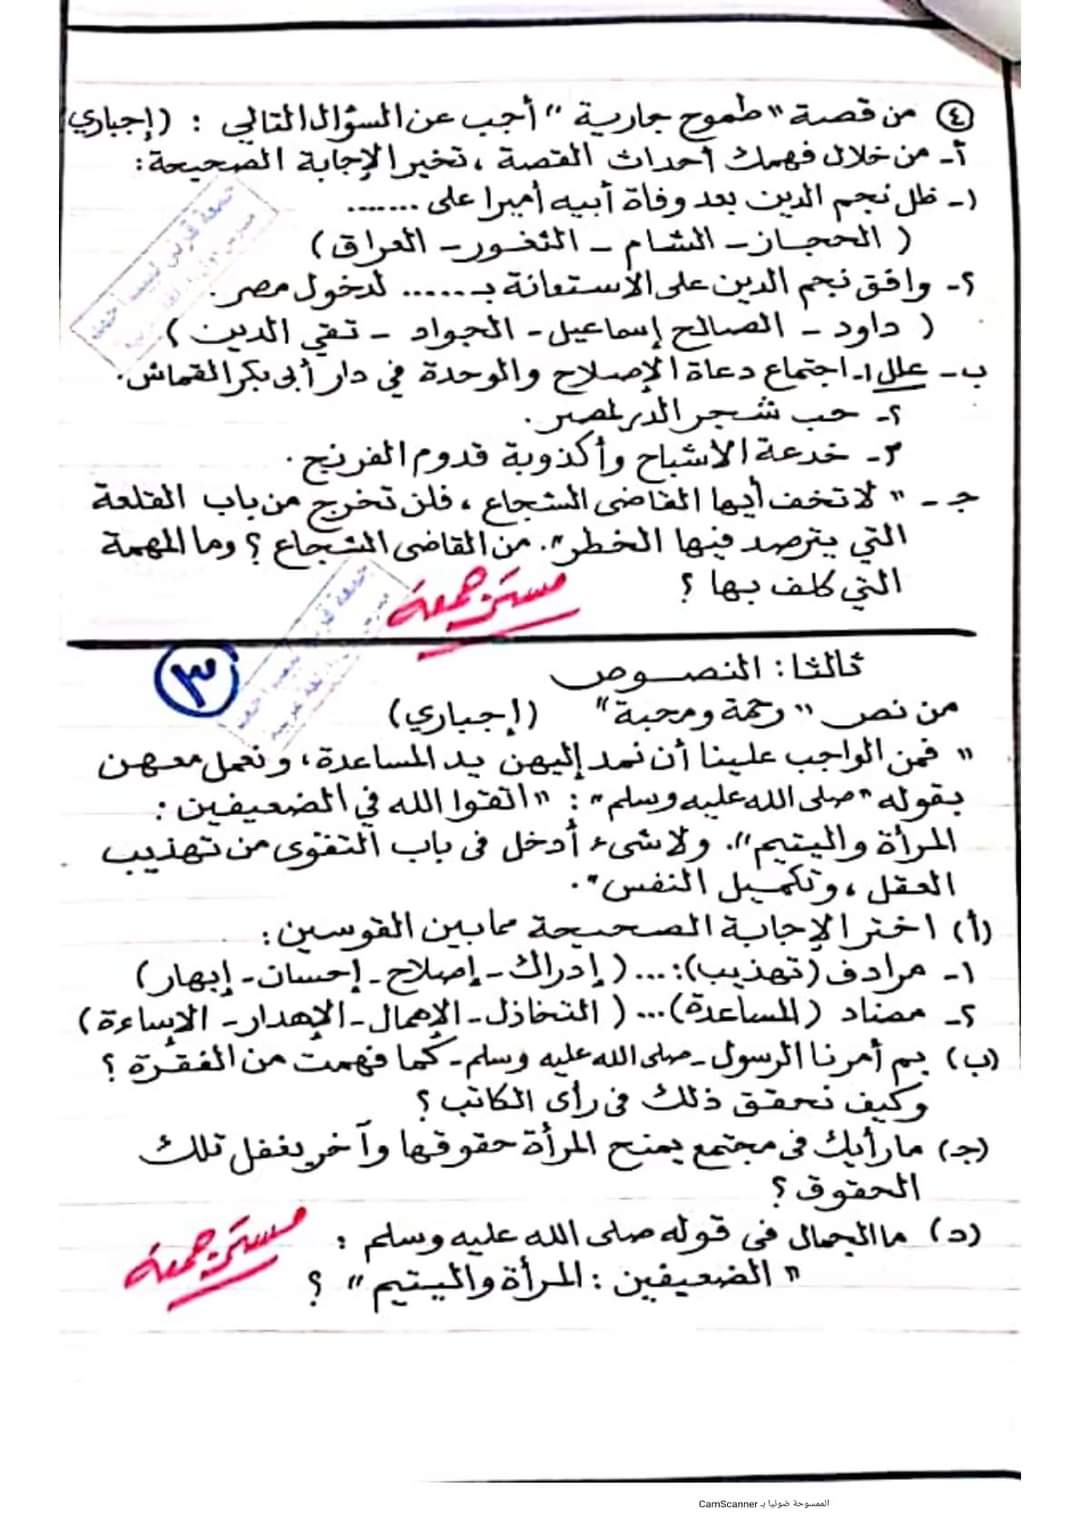 ④ من قصة "طموح جارية" أجب عن السؤال التالي : (إجباري)
أ- من خلال فهمك أحداث القصة ، تخير الإجابة الصحيحة:
١- ظل نجم الدين بعد وفاة أبيه أميرا على .......
( الحجاز - الشام - الثغور - العراق )
٢- وافق نجم الدين على الاستعانة بـ ...... لدخول مصر.
( داود - الصالح إسماعيل - الجواد - تقي الدين )
ب- علل ١- اجتماع دعاة الإصلاح والوحدة في دار أبى بكر القماش.
٢- حب شجر الدر لمصر.
٣- خدعة الأشباح وأكذوبة قدوم الفرنج .
جـ - " لا تخف أيها القاضى الشجاع ، فلن تخرج من باب القلعة
التي يترصد فيها الخطر". من القاضى الشجاع ؟ وما المهمة
التي كلف بها ؟
مستر جمعة
٣
ثالثا : النصوص
من نص " رحمة ومحبة" (إجباري)
" فمن الواجب علينا أن نمد إليهن يد المساعدة ، ونعمل معهن
بقوله "صلى الله عليه وسلم" : "اتقوا الله في الضعيفين :
المرأة واليتيم". ولا شىء أدخل فى باب التقوى من تهذيب
العقل ، وتكميل النفس".
(أ) اختر الإجابة الصحيحة مما بين القوسين :
١- مرادف (تهذيب): ... ( إدراك - إصلاح - إحسان - إبهار)
٢- مضاد (المساعدة) ... ( التخاذل - الإهمال - الإهدار - الإساءة )
(ب) بم أمرنا الرسول - صلى الله عليه وسلم - كما فهمت من الفقرة ؟
وكيف نحقق ذلك فى رأى الكاتب ؟
(جـ) ما رأيك فى مجتمع يمنح المرأة حقوقها وآخر يغفل تلك
الحقوق ؟
(د) ما الجمال فى قوله صلى الله عليه وسلم :
" الضعيفين : المرأة واليتيم " ؟
مستر جمعة
الممسوحة ضوئيا بـ CamScanner